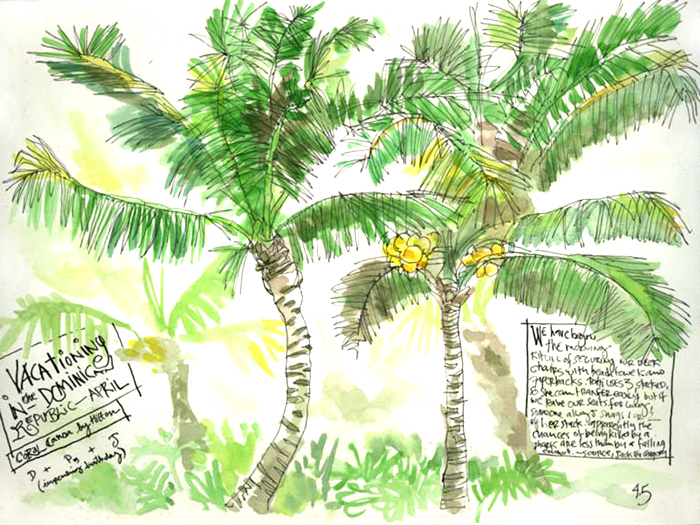 VACATIONING
IN the DOMINICAN
REPUBLIC - APRIL
CORAL CANOA by HILTON
D + P + J
(impending birthday)
WE have begun
the morning
RITUAL of securing our deck
chairs with beach towels and
paperbacks. uses 3 stacked,
so she can transfer easily but if
we leave our seats for long
someone always
of her stack. Apparently the
chances of being killed by a
shark are less than by a falling
coconut. —source, Jack the
45